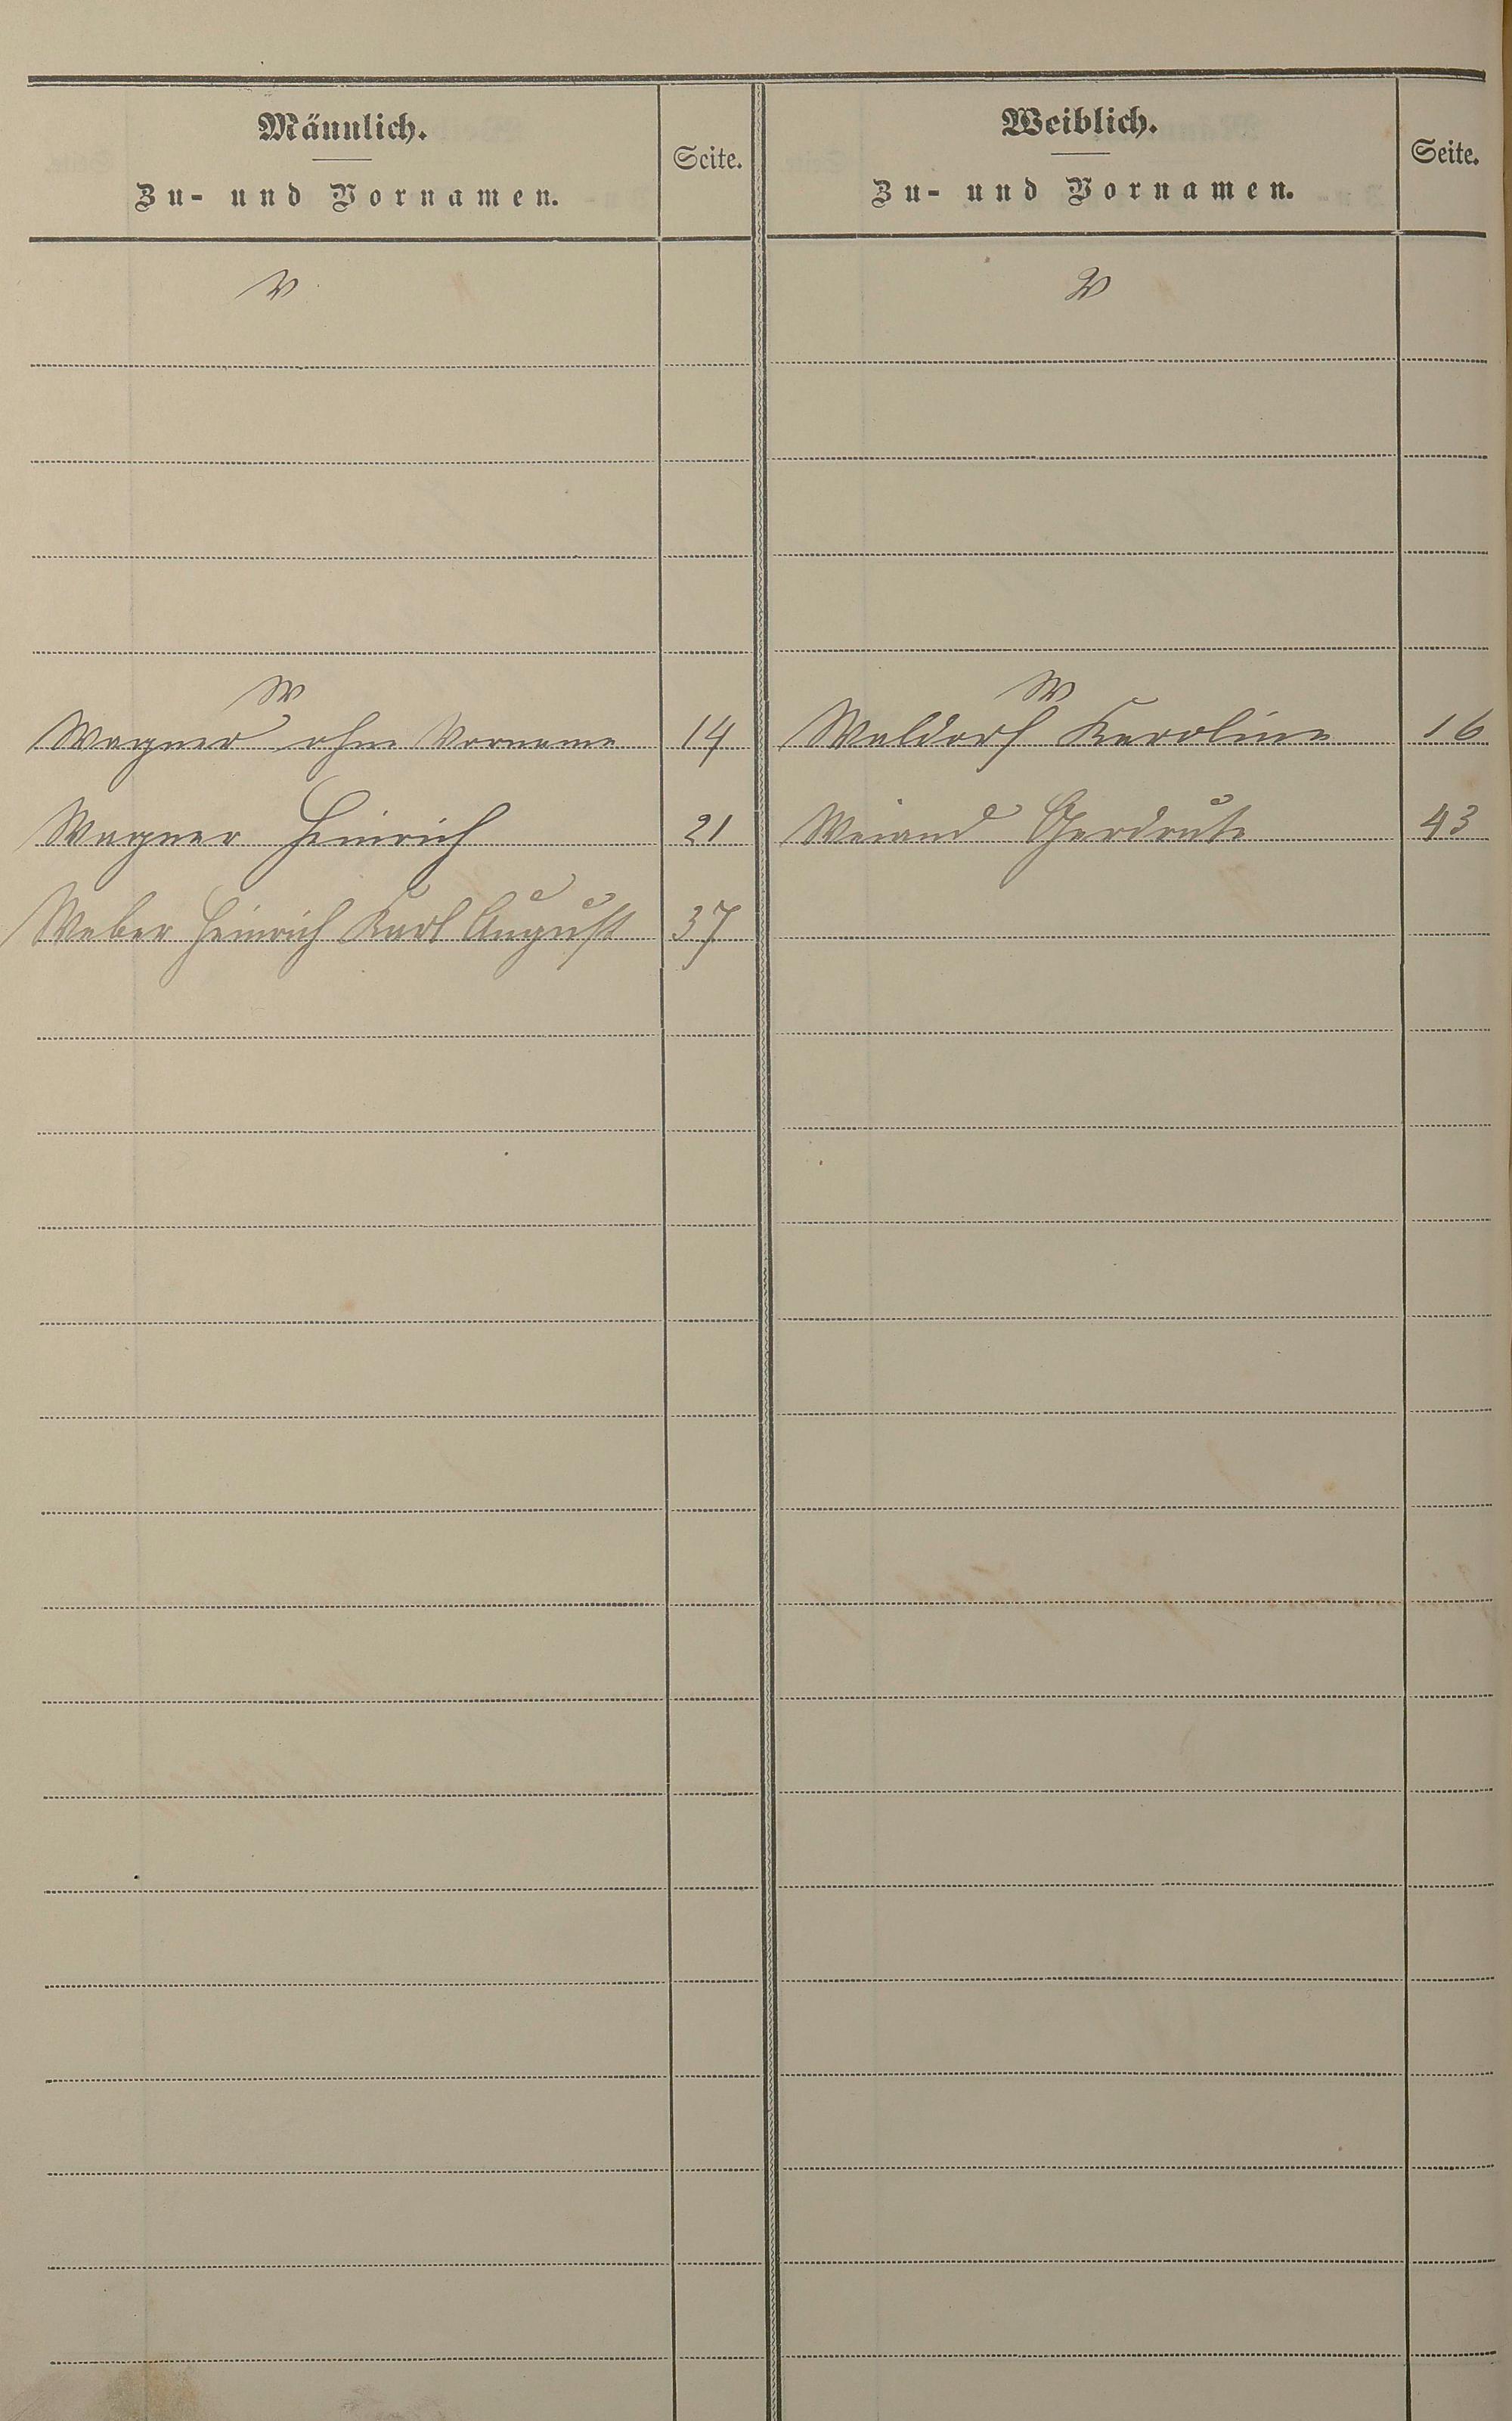 Männlich.
Zu- und Vornamen.
Seite.
Weiblich.
Zu- und Vornamen.
Seite.
V
V
W
W
Wagner ohne Vorname 14
Waldorf Karoline 16
Wagner Heinrich 21
Weiand Gerdrute 43
Weber Heinrich Karl August 37